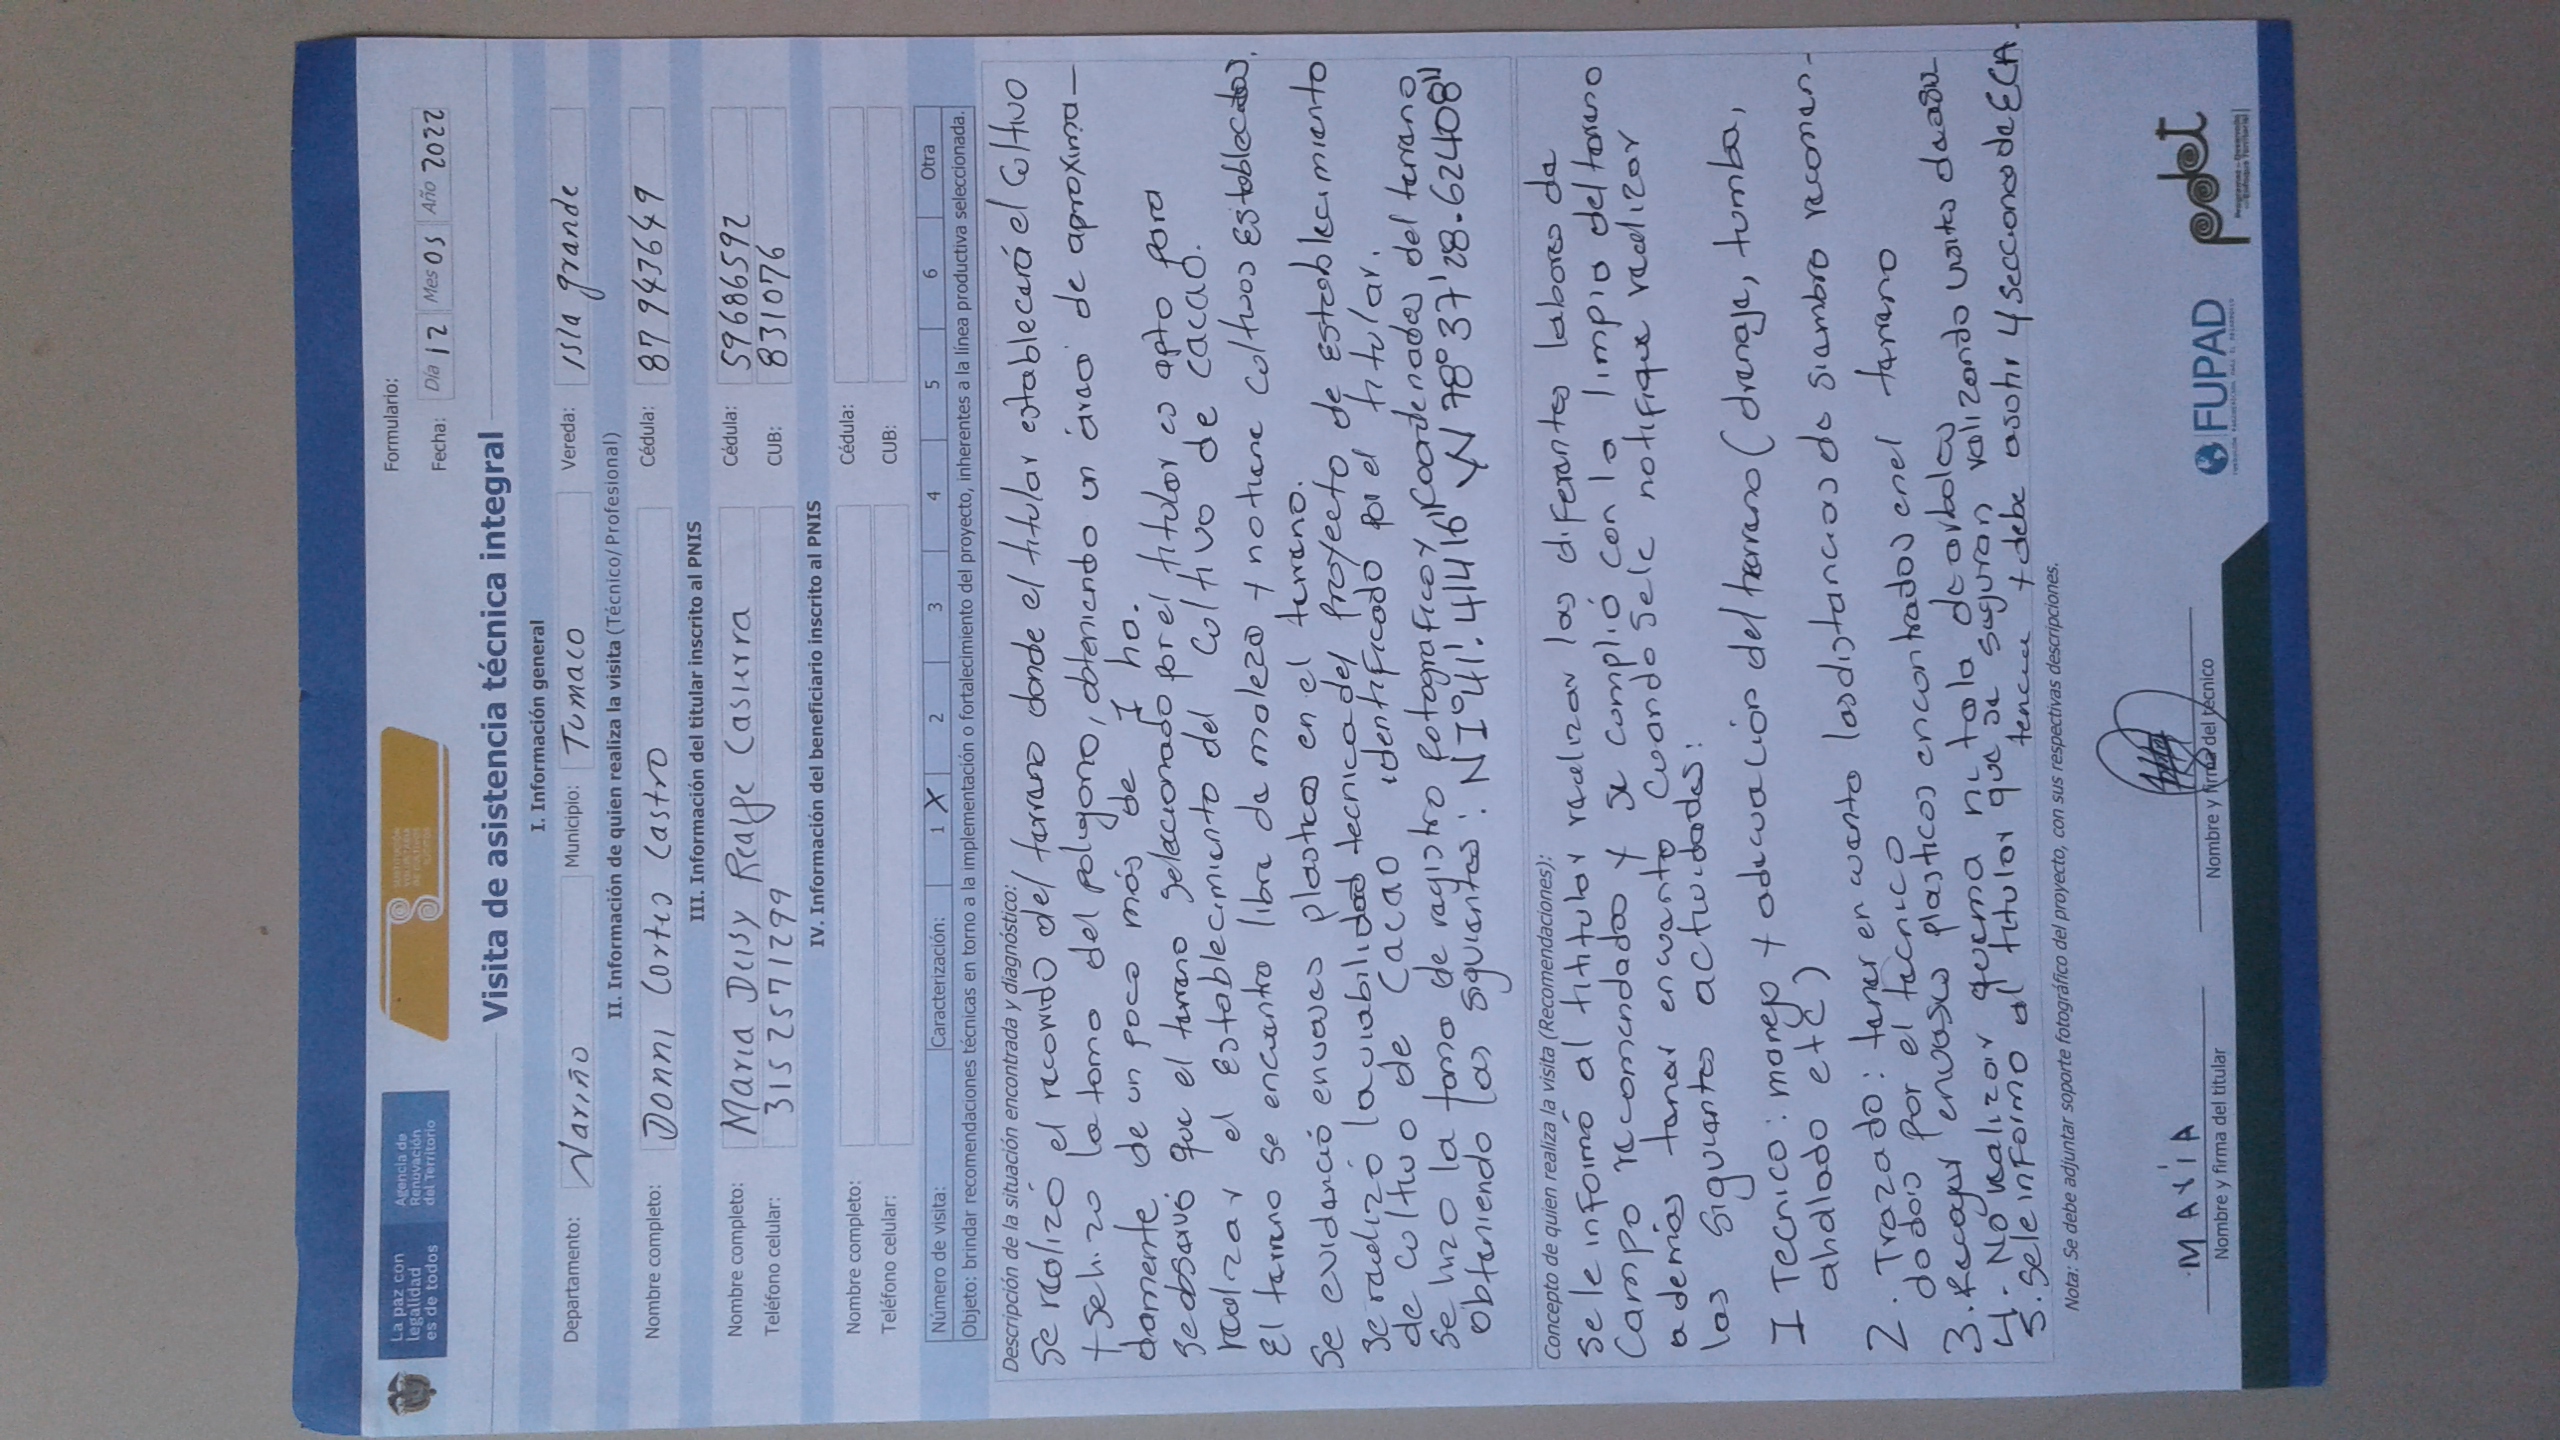 La paz con
legalidad
es de todos
Agencia de
Renovación
del Territorio
SUSTITUCIÓN
VOLUNTARIA
DE CULTIVOS
ILÍCITOS
Formulario:
Fecha: Día 12 Mes 05 Año 2022
Visita de asistencia técnica integral
I. Información general
Departamento: Nariño Municipio: Tumaco Vereda: Isla grande
II. Información de quien realiza la visita (Técnico/Profesional)
Nombre completo: Donni Cortes Castro Cédula: 87943649
III. Información del titular inscrito al PNIS
Nombre completo: Maria Deisy Realpe Casierra Cédula: 59686592
Teléfono celular: 3152571299 CUB: 831076
IV. Información del beneficiario inscrito al PNIS
Nombre completo: Cédula:
Teléfono celular: CUB:
Número de visita: Caracterización: 1 X 2 3 4 5 6 Otra
Objeto: brindar recomendaciones técnicas en torno a la implementación o fortalecimiento del proyecto, inherentes a la línea productiva seleccionada.
Descripción de la situación encontrada y diagnóstico:
Se realizó el recorrido del terreno donde el titular establecerá el Cultivo
y se hizo la toma del poligono, obteniendo un área de aproxima-
damente de un poco más de 1 ha.
se observó que el terreno seleccionado por el titular es apto para
realizar el establecimiento del Cultivo de cacao.
El terreno se encuentra libre de maleza y no tiene cultivos establecidos.
Se evidenció envases plasticos en el terreno.
se realizó la viabilidad tecnica del Proyecto de Establecimiento
de cultivo de Cacao identificado por el titular.
Se hizo la toma de registro fotografico y Coordenadas del terreno
obteniendo las siguientes: N 1°41'.41416" W 78°37'28.62408"
Concepto de quien realiza la visita (Recomendaciones):
Se le informó al titular realizar las diferentes labores de
Campo recomendadas y se cumplió con la limpia del terreno
además tener en cuenta Cuando se le notifique realizar
las siguientes actividades:
1 Tecnico: manejo y adecuación del terreno (drenaje, tumba,
ahollado etc)
2. Trazado: tener en cuenta las distancias de siembra recomen-
dadas por el tecnico
3. Recoger envases plasticos encontrados en el terreno
4. No realizar quema ni tala de arboles
5. Se le informo al titular que se seguiran realizando visitas
tecnica y debe asistir 4 Secciones de ECA.
Nota: Se debe adjuntar soporte fotográfico del proyecto, con sus respectivas descripciones.
MAVIA
Nombre y firma del titular
Nombre y firma del técnico
FUPAD
pdet